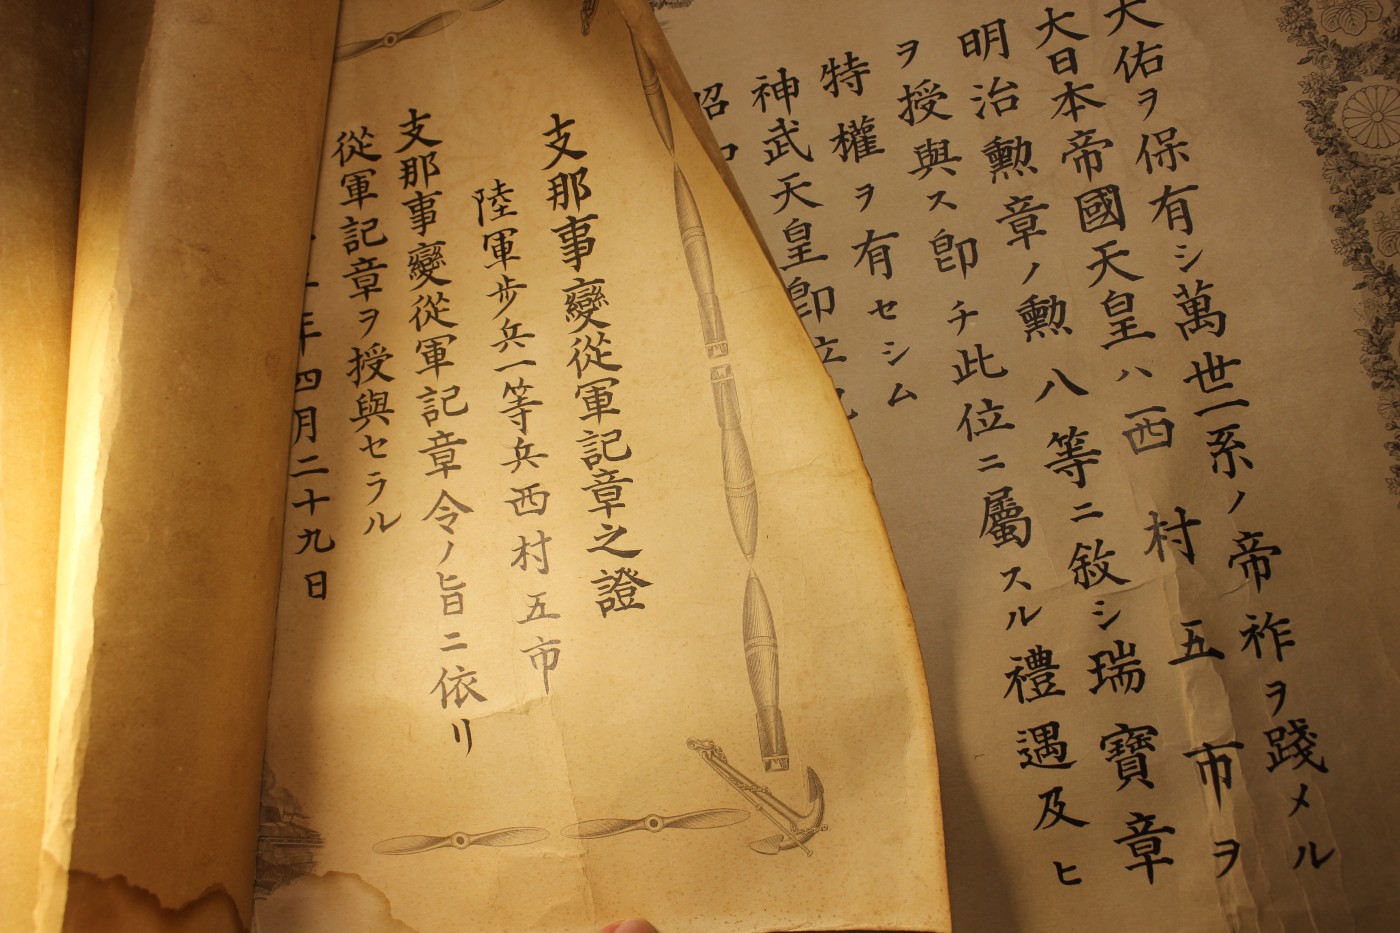 天佑ヲ保有シ萬世一系ノ帝祚ヲ踐メル
大日本帝國天皇ハ西村五市ヲ
明治勳章ノ勳八等ニ敘シ瑞寶章
ヲ授與ス卽チ此位ニ屬スル禮遇及ヒ
特權ヲ有セシム
神武天皇卽位
昭
支那事變從軍記章之證
陸軍歩兵一等兵西村五市
支那事變從軍記章令ノ旨ニ依リ
從軍記章ヲ授與セラル
年四月二十九日